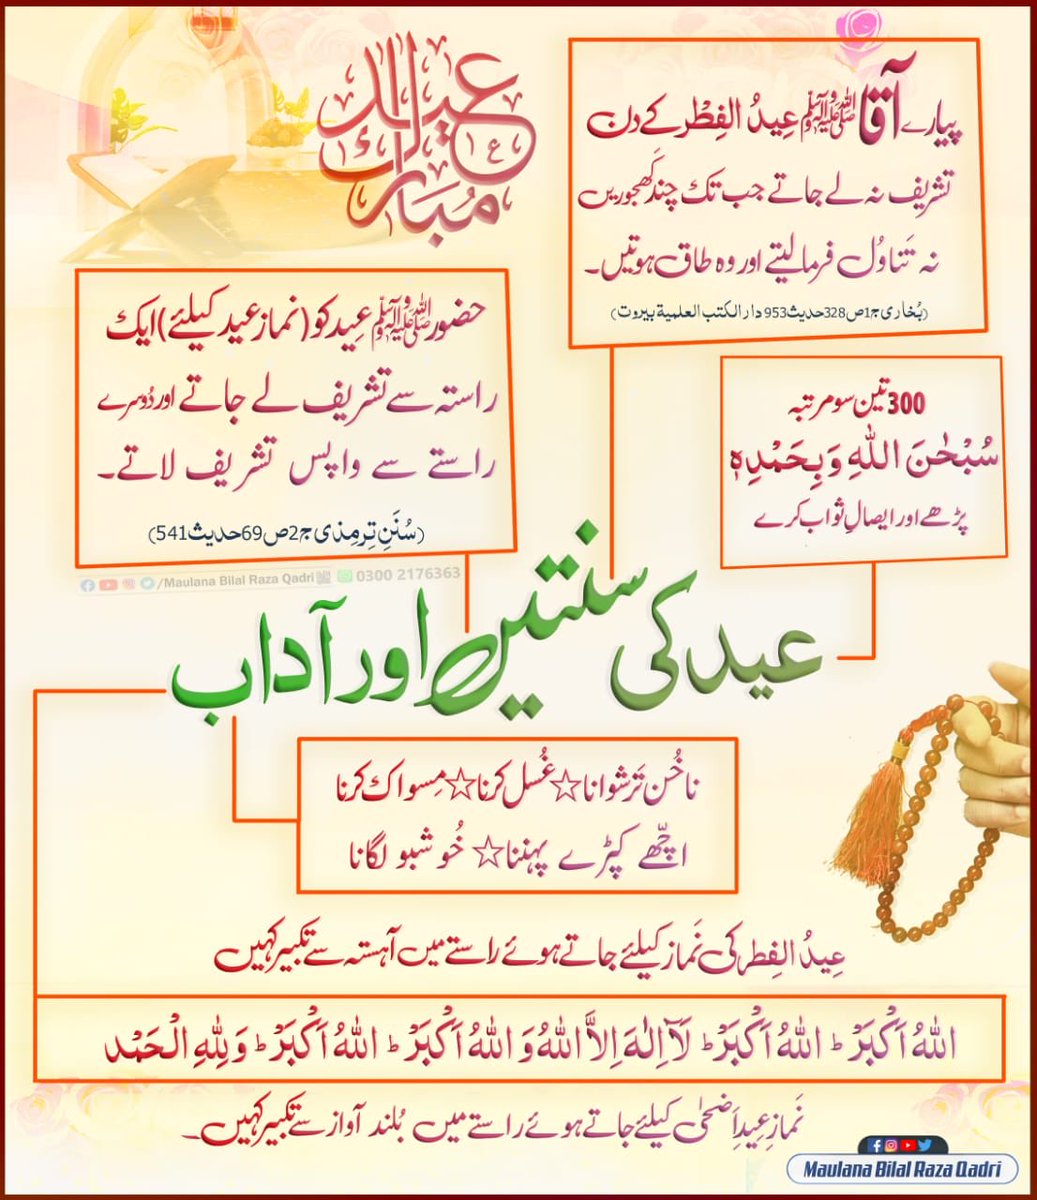 عید مبارک
پیارے آقا ﷺ عِیدُ الفِطْر کے دن
تشریف نہ لے جاتے جب تک چند کَھجوریں
نہ تَناوُل فرمالیتے اور وہ طاق ہوتیں۔
(بُخاری ج1ص328حدیث953 دار الکتب العلمیة بیروت)
حضور ﷺ عِید کو (نماز عید کیلئے) ایک
راستہ سے تشریف لے جاتے اور دُوسرے
راستے سے واپس تشریف لاتے۔
(سُنَنِ تِرمِذی ج2ص69حدیث541)
300 تین سو مرتبہ
سُبْحٰنَ اللهِ وَبِحَمْدِہٖ
پڑھے اور ایصالِ ثواب کرے
/Maulana Bilal Raza Qadri 0300 2176363
عید کی سنتیں اور آداب
ناخُن تَرشوانا☆غُسل کرنا☆مِسواک کرنا
اچّھے کپڑے پہننا☆ خُوشبو لگانا
عِیدُ الفِطر کی نَماز کیلئے جاتے ہوئے راستے میں آہستہ سے تکبیر کہیں
اَللهُ اَکْبَرْ ؕ اَللهُ اَکْبَرْ ؕ لَآ اِلٰهَ اِلَّا اللهُ وَ اللهُ اَکْبَرْ ؕ اَللهُ اَکْبَرْ ؕ وَلِلّٰهِ الْحَمْد
نَمازِ عِیدِ اَضحٰی کیلئے جاتے ہوئے راستے میں بُلند آواز سے تکبیر کہیں۔
Maulana Bilal Raza Qadri